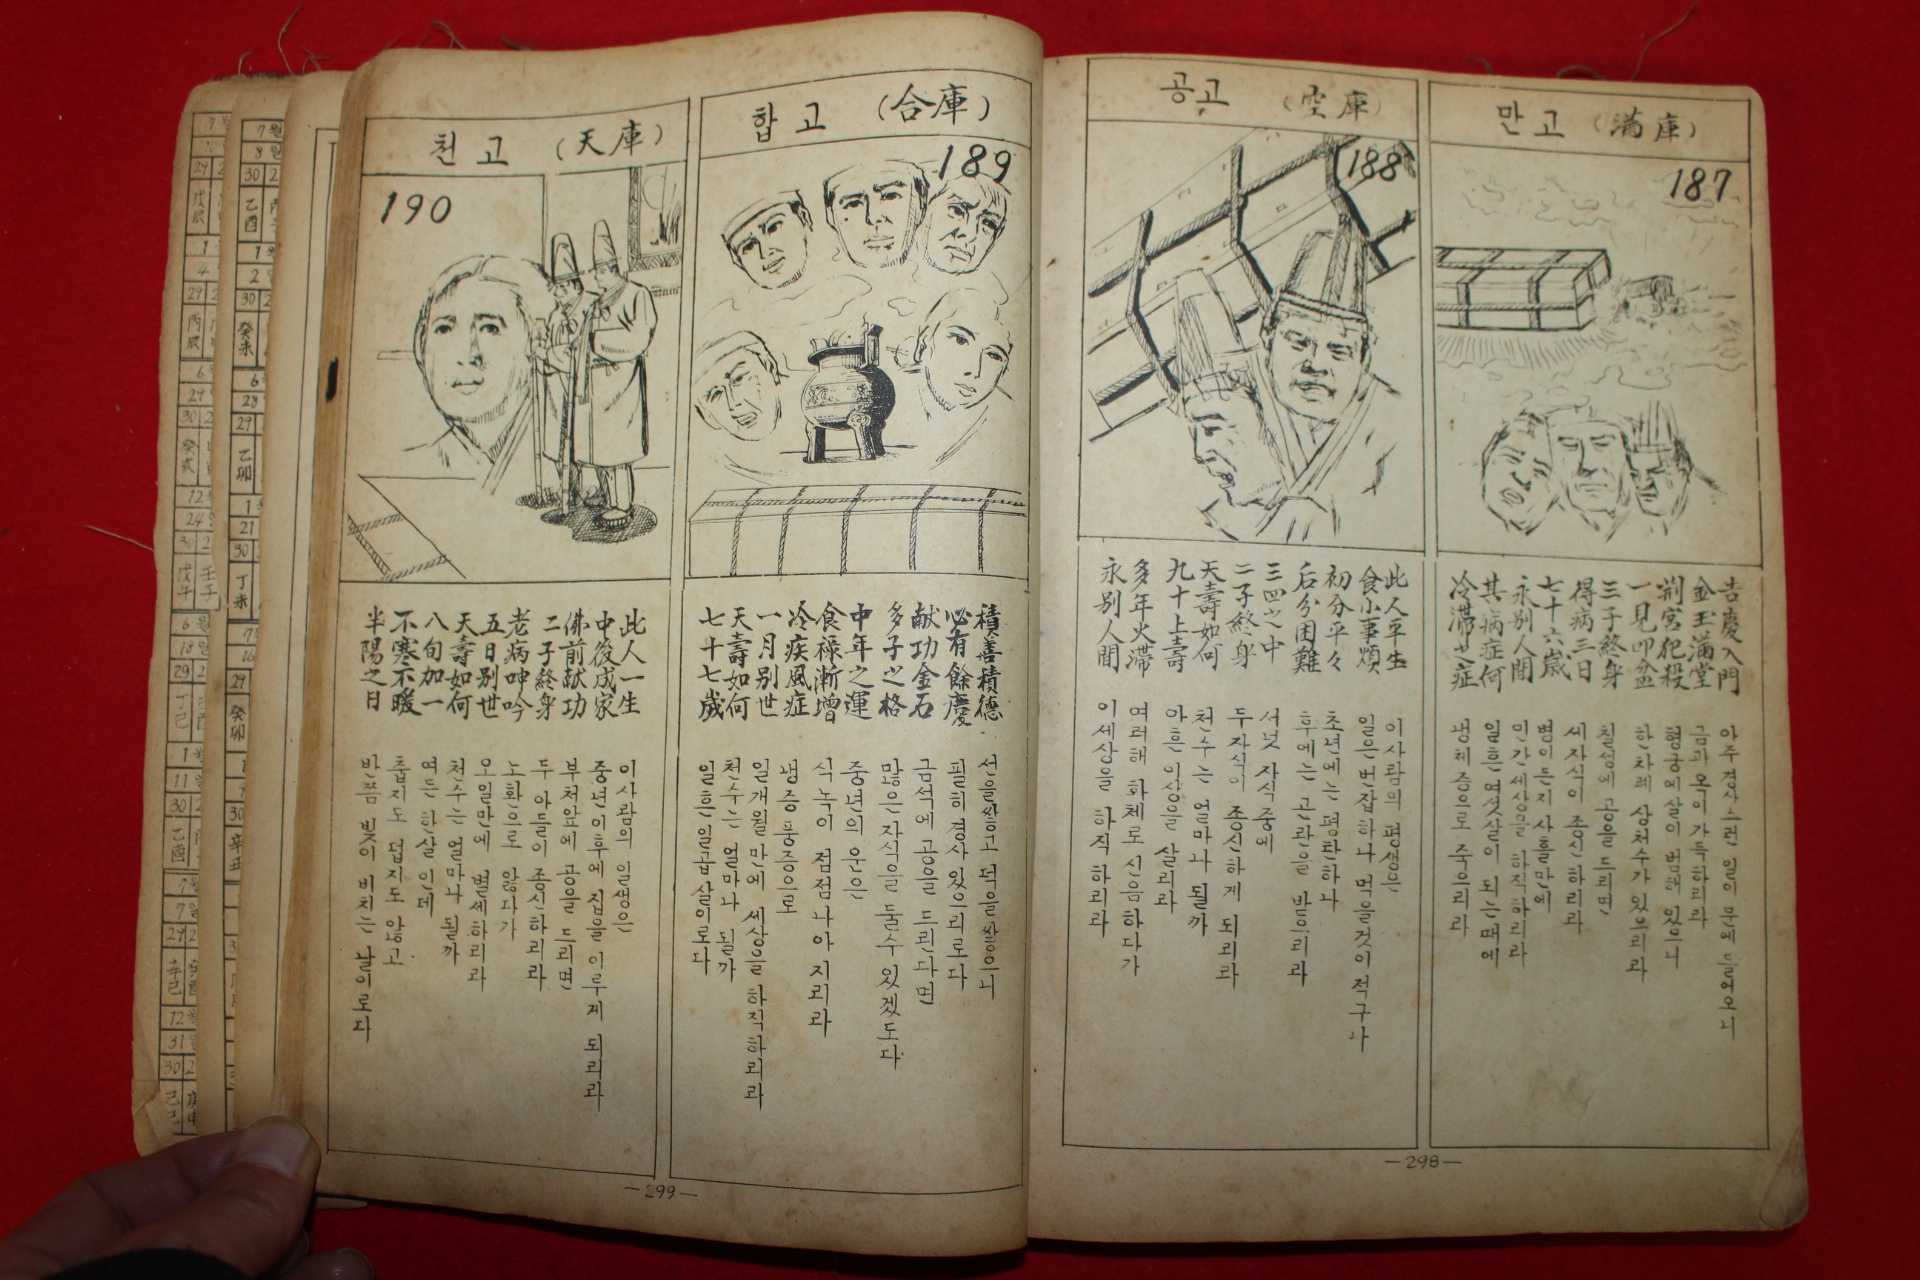 만고 (滿庫)
187
吉慶入門
金玉滿堂
荊宮犯殺
一見叩盆
三子終身
得病三日
七十六歲
永別人間
其病症何
冷滯之症
아주 경사스런 일이 문에 들어오니
금과 옥이 가득하리라
형궁에 살이 범해 있으니
한차례 상처수가 있으리라
칠성에 공을 드리면
세자식이 종신하리라
병이든지 사흘만에
인간세상을 하직하리라
일흔여섯살이 되는때에
냉체증으로 죽으리라
공고 (空庫)
188
此人平生
食小事煩
初分平々
后分困難
三四之中
二子終身
天壽如何
九十上壽
多年火滯
永别人間
이사람의 평생은
일은번잡하나 먹을것이적구나
초년에는 평탄하나
후에는 곤란을 받으리라
서넛 자식중에
두자식이 종신하게 되리라
천수는 얼마나 될까
아흔이상을 살리라
여러해 화체로 신음하다가
이세상을 하직하리라
—298—
합고 (合庫)
189
積善積德
必有餘慶
献功金石
多子之格
中年之運
食祿漸增
冷疾風症
一月别世
天壽如何
七十七歲
선을쌓고 덕을쌓으니
필히 경사있으리로다
금석에 공을 드린다면
많은자식을 둘수있겠도다
중년의 운은
식녹이 점점나아지리라
냉증풍증으로
일개월만에 세상을 하직하리라
천수는 얼마나 될까
일흔일곱살이로다
천고 (天庫)
190
此人一生
中後成家
佛前献功
二子終身
老病呻吟
五日别世
天壽如何
八旬加一
不寒不暖
半陽之日
이사람의 일생은
중년이후에 집을 이루게 되리라
부처앞에 공을 드리면
두 아들이 종신하리라
노환으로 앓다가
오일만에 별세하리라
천수는 얼마나 될까
여든 한살 인데
춥지도 덥지도 않고
반쯤 빛이 비치는 날이로다
—299—